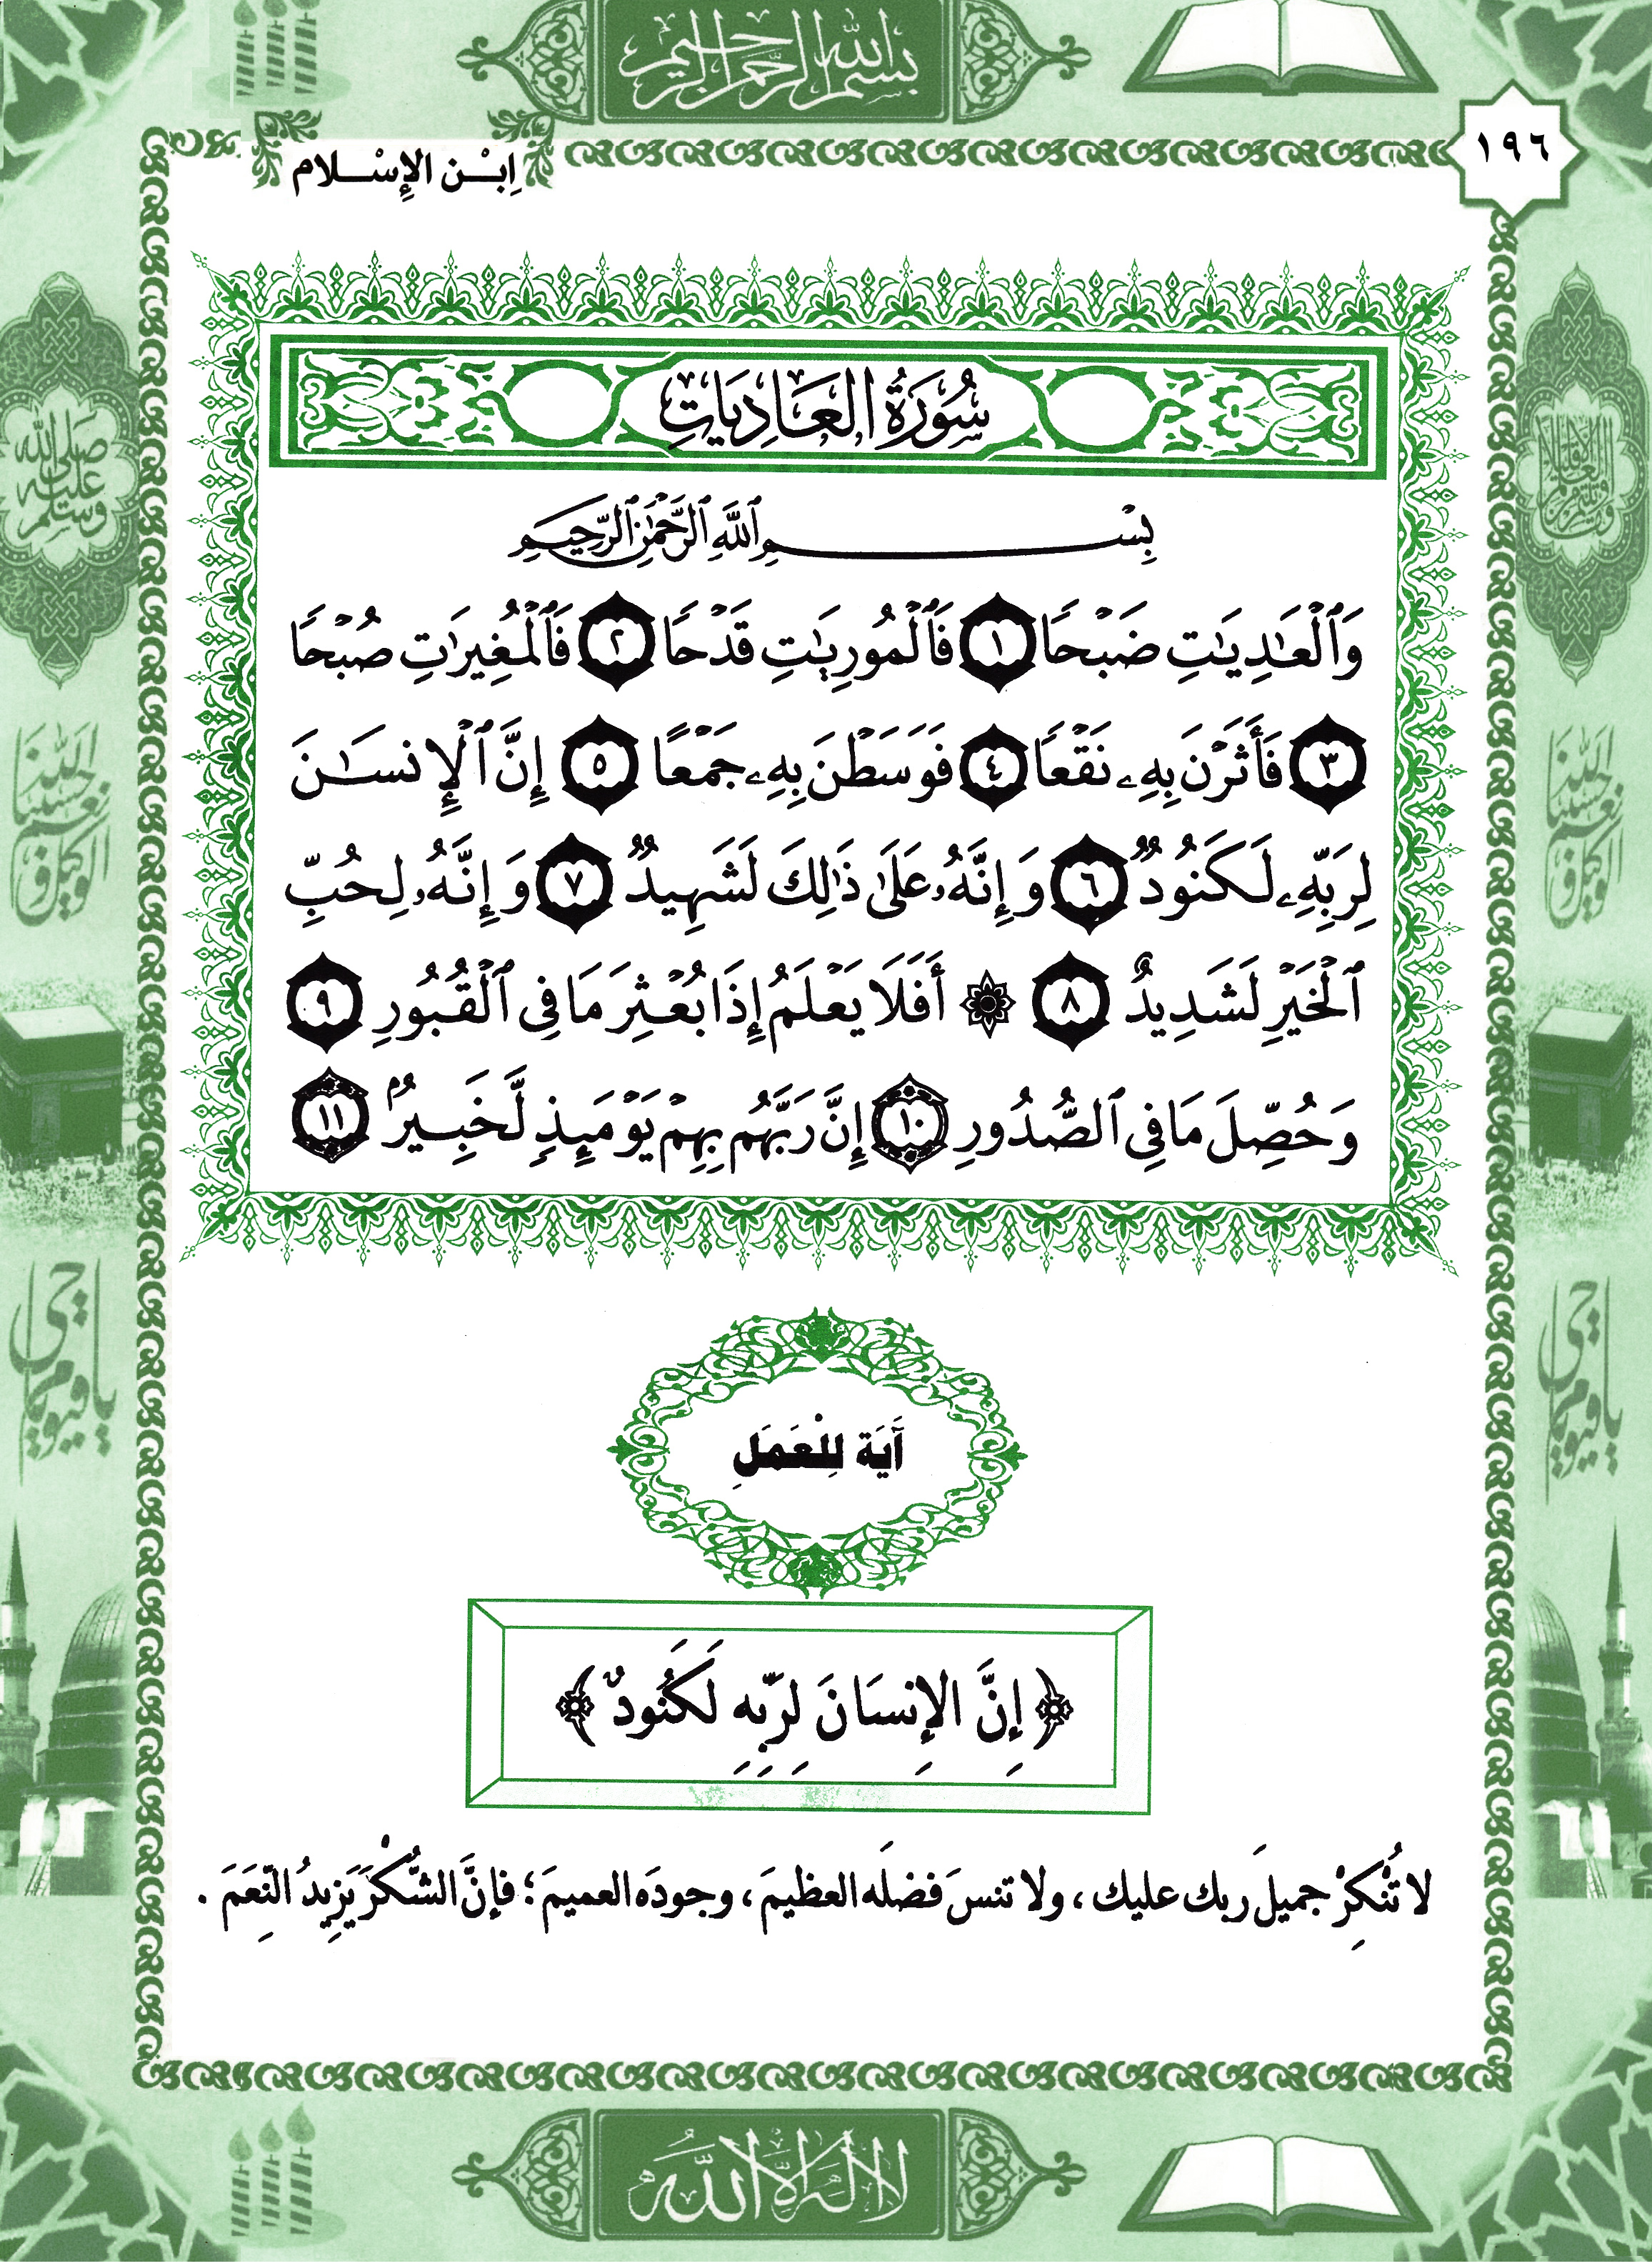 بسم الله الرحمن الرحيم
١٩٦
اِبْـن الإِسْـلام
سُورَةُ الْعَادِيَاتِ
بِسْمِ ٱللَّهِ ٱلرَّحْمَٰنِ ٱلرَّحِيمِ
وَٱلْعَٰدِيَٰتِ ضَبْحًا ١ فَٱلْمُورِيَٰتِ قَدْحًا ٢ فَٱلْمُغِيرَٰتِ صُبْحًا
٣ فَأَثَرْنَ بِهِۦ نَقْعًا ٤ فَوَسَطْنَ بِهِۦ جَمْعًا ٥ إِنَّ ٱلْإِنسَٰنَ
لِرَبِّهِۦ لَكَنُودٌ ٦ وَإِنَّهُۥ عَلَىٰ ذَٰلِكَ لَشَهِيدٌ ٧ وَإِنَّهُۥ لِحُبِّ
ٱلْخَيْرِ لَشَدِيدٌ ٨ ۞ أَفَلَا يَعْلَمُ إِذَا بُعْثِرَ مَا فِى ٱلْقُبُورِ ٩
وَحُصِّلَ مَا فِى ٱلصُّدُورِ ١٠ إِنَّ رَبَّهُم بِهِمْ يَوْمَئِذٍ لَّخَبِيرٌۢ ١١
آيَة لِلْعَمَلِ
﴿ إِنَّ الإِنسَانَ لِرَبِّهِ لَكَنُودٌ ﴾
لا تُنْكِرْ جميلَ ربك عليك ، ولا تنسَ فضلَه العظيمَ ، وجودَه العميمَ ؛ فإنَّ الشُّكْرَ يَزِيدُ النِّعَمَ .
صلى الله عليه وسلم
حسبنا الله ونعم الوكيل
حسبنا الله ونعم الوكيل
يا حي يا قيوم
يا حي يا قيوم
لا اله الا الله